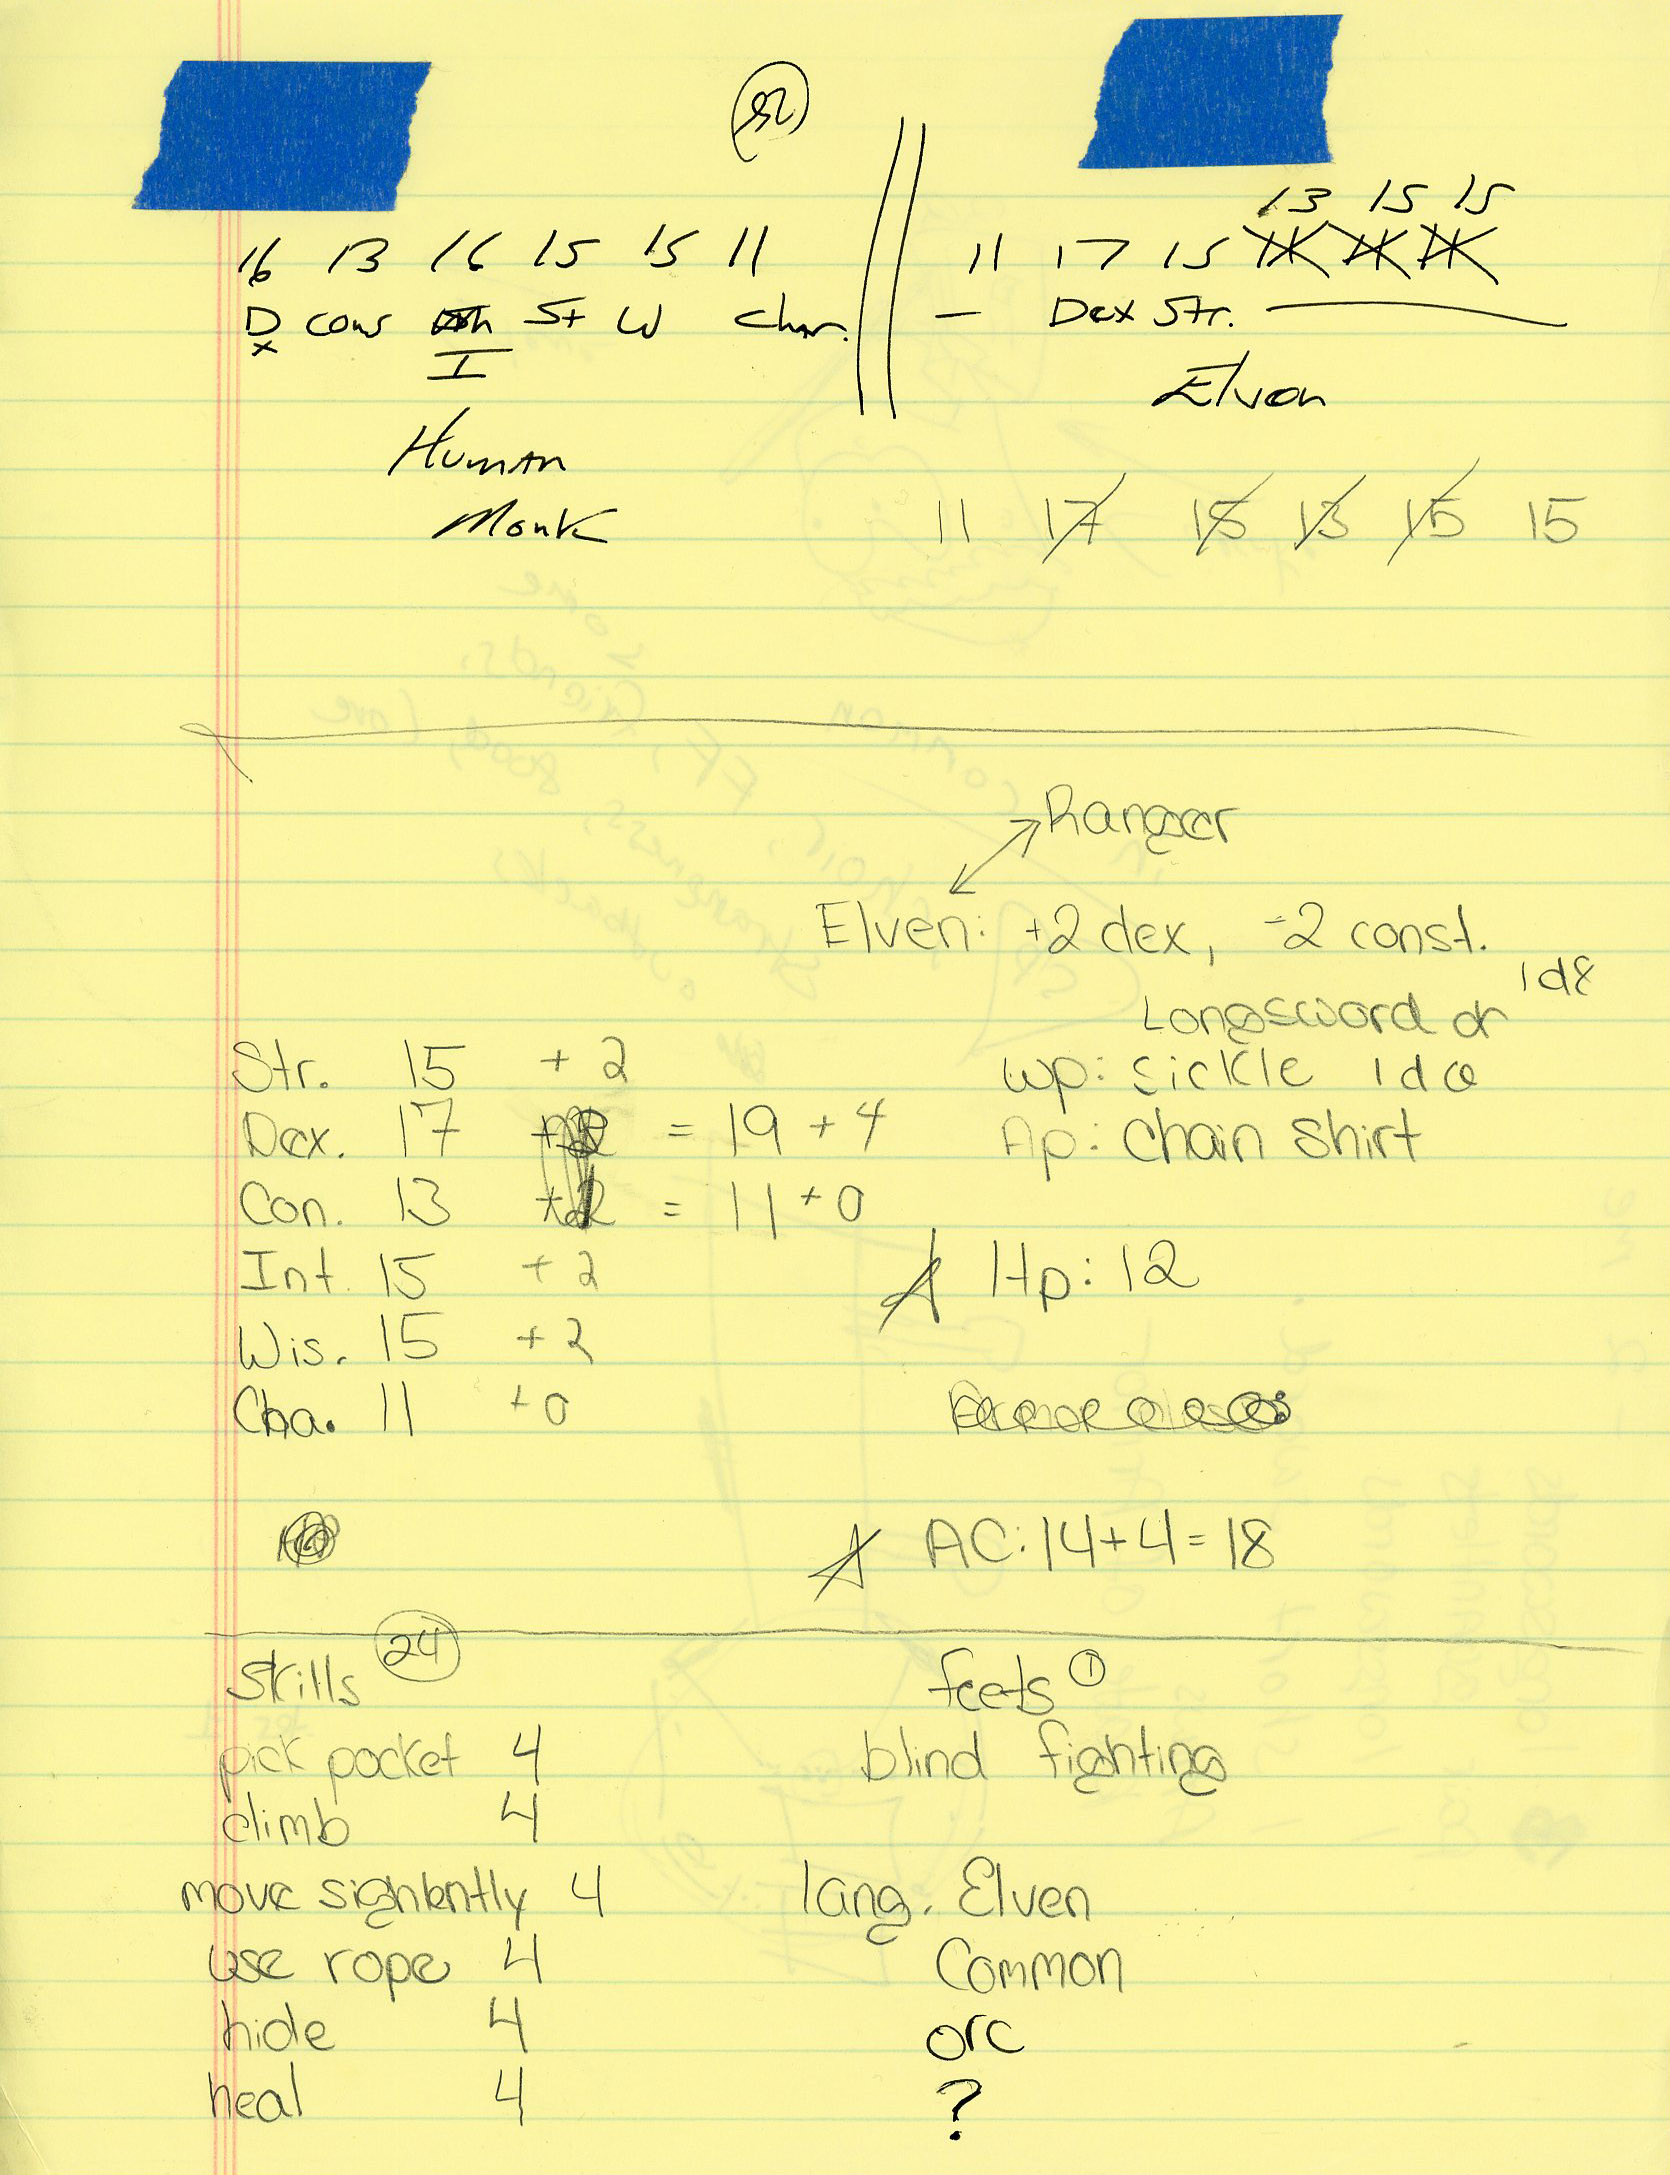 16 13 16 15 15 11
Dx Cons I St W Char.
Human
Monk
13 15 15
11 17 15
— Dex Str.
Elven
11 17 15 13 15 15
Ranger
Elven: +2 dex, -2 const.
Longsword or 1d8
wp: sickle 1d6
Ap: Chain Shirt
Str. 15 +2
Dex. 17 = 19 +4
Con. 13 = 11 +0
Int. 15 +2
Wis. 15 +2
Cha. 11 +0
Hp: 12
AC: 14+4=18
Skills 24
pick pocket 4
climb 4
move sighlently 4
use rope 4
hide 4
heal 4
feets 1
blind fighting
lang. Elven
Common
orc
?